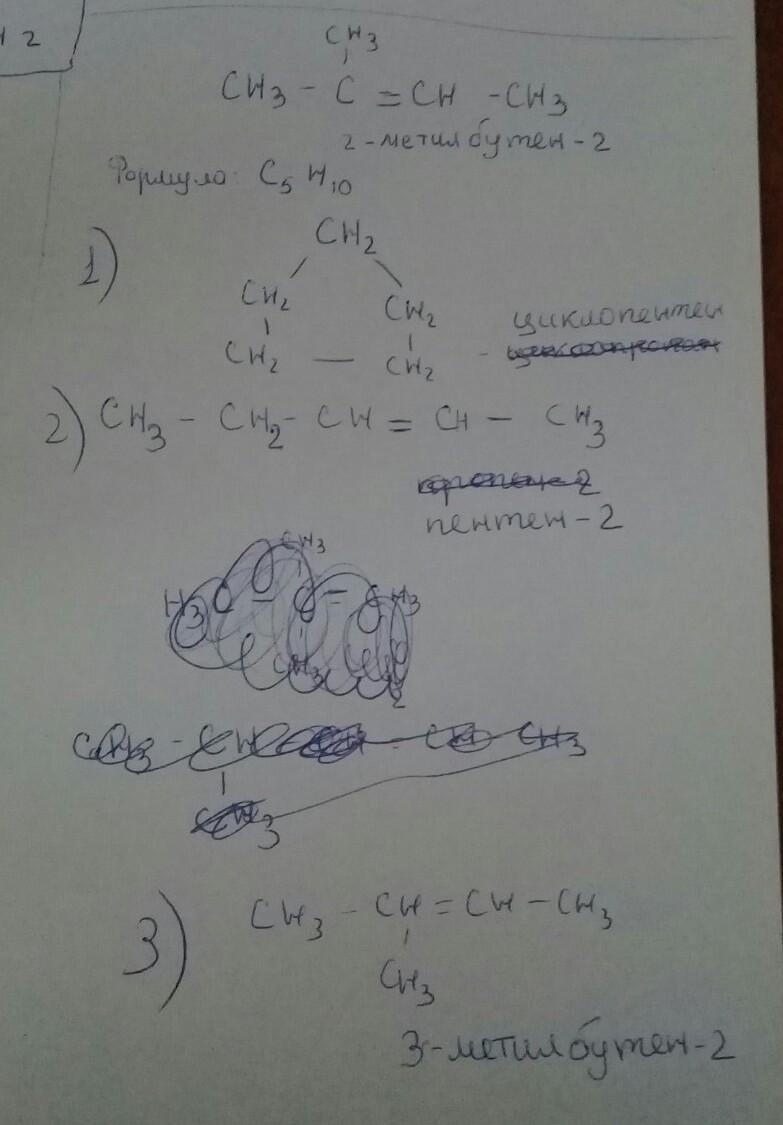 H 2
CH3
CH3 - C = CH - CH3
2-метилбутен-2
Формула: C5 H10
1)
CH2
CH2 CH2
CH2 — CH2 - циклопентен
2) CH3 - CH2 - CH = CH - CH3
пентен-2
3) CH3 - CH = CH - CH3
CH3
3-метилбутен-2